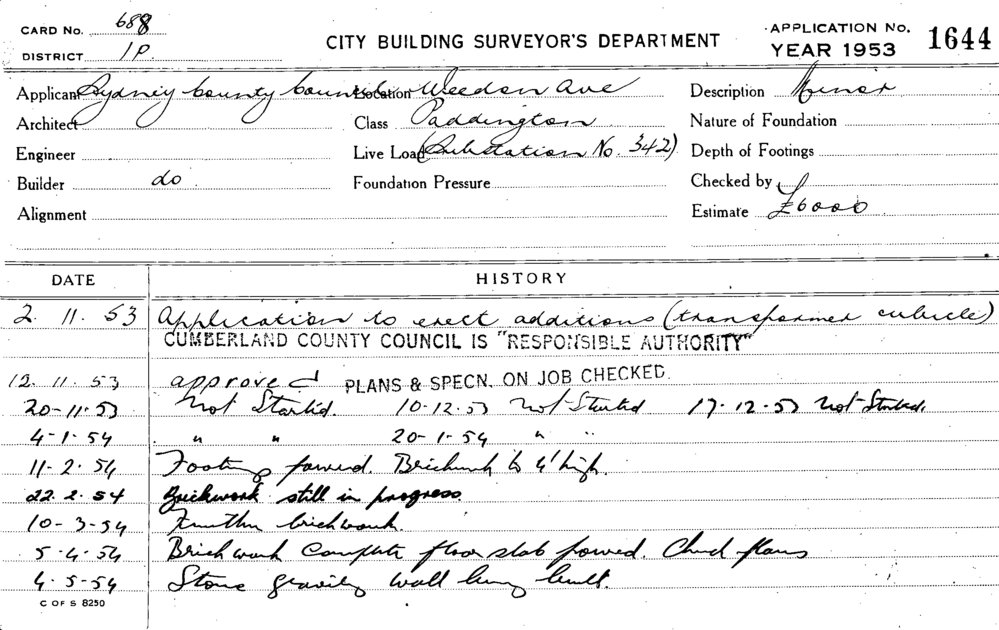 CARD No. 688
DISTRICT 1P.
CITY BUILDING SURVEYOR'S DEPARTMENT
APPLICATION No. 1644
YEAR 1953
Applicant Sydney County Council Location Weedon Ave Description Minor
Architect Class Paddington Nature of Foundation
Engineer Live Load (Substation No. 342) Depth of Footings
Builder do Foundation Pressure Checked by
Alignment Estimate £6000
DATE HISTORY
2. 11. 53 Application to erect additions (transformer cubicle)
CUMBERLAND COUNTY COUNCIL IS "RESPONSIBLE AUTHORITY"
12. 11. 53 approved PLANS & SPECN. ON JOB CHECKED.
20-11-53 Not Started. 10-12-53 Not Started 17-12-53 Not Started.
4-1-54 " " 20-1-54 " "
11-2-54 Footings poured. Brickwork to 4' high.
22.2.54 Brickwork still in progress
10-3-54 Further brickwork.
5-4-54 Brickwork Complete floor slab poured. plans
4-5-54 Stone gravity wall being built.
C OF S 8250